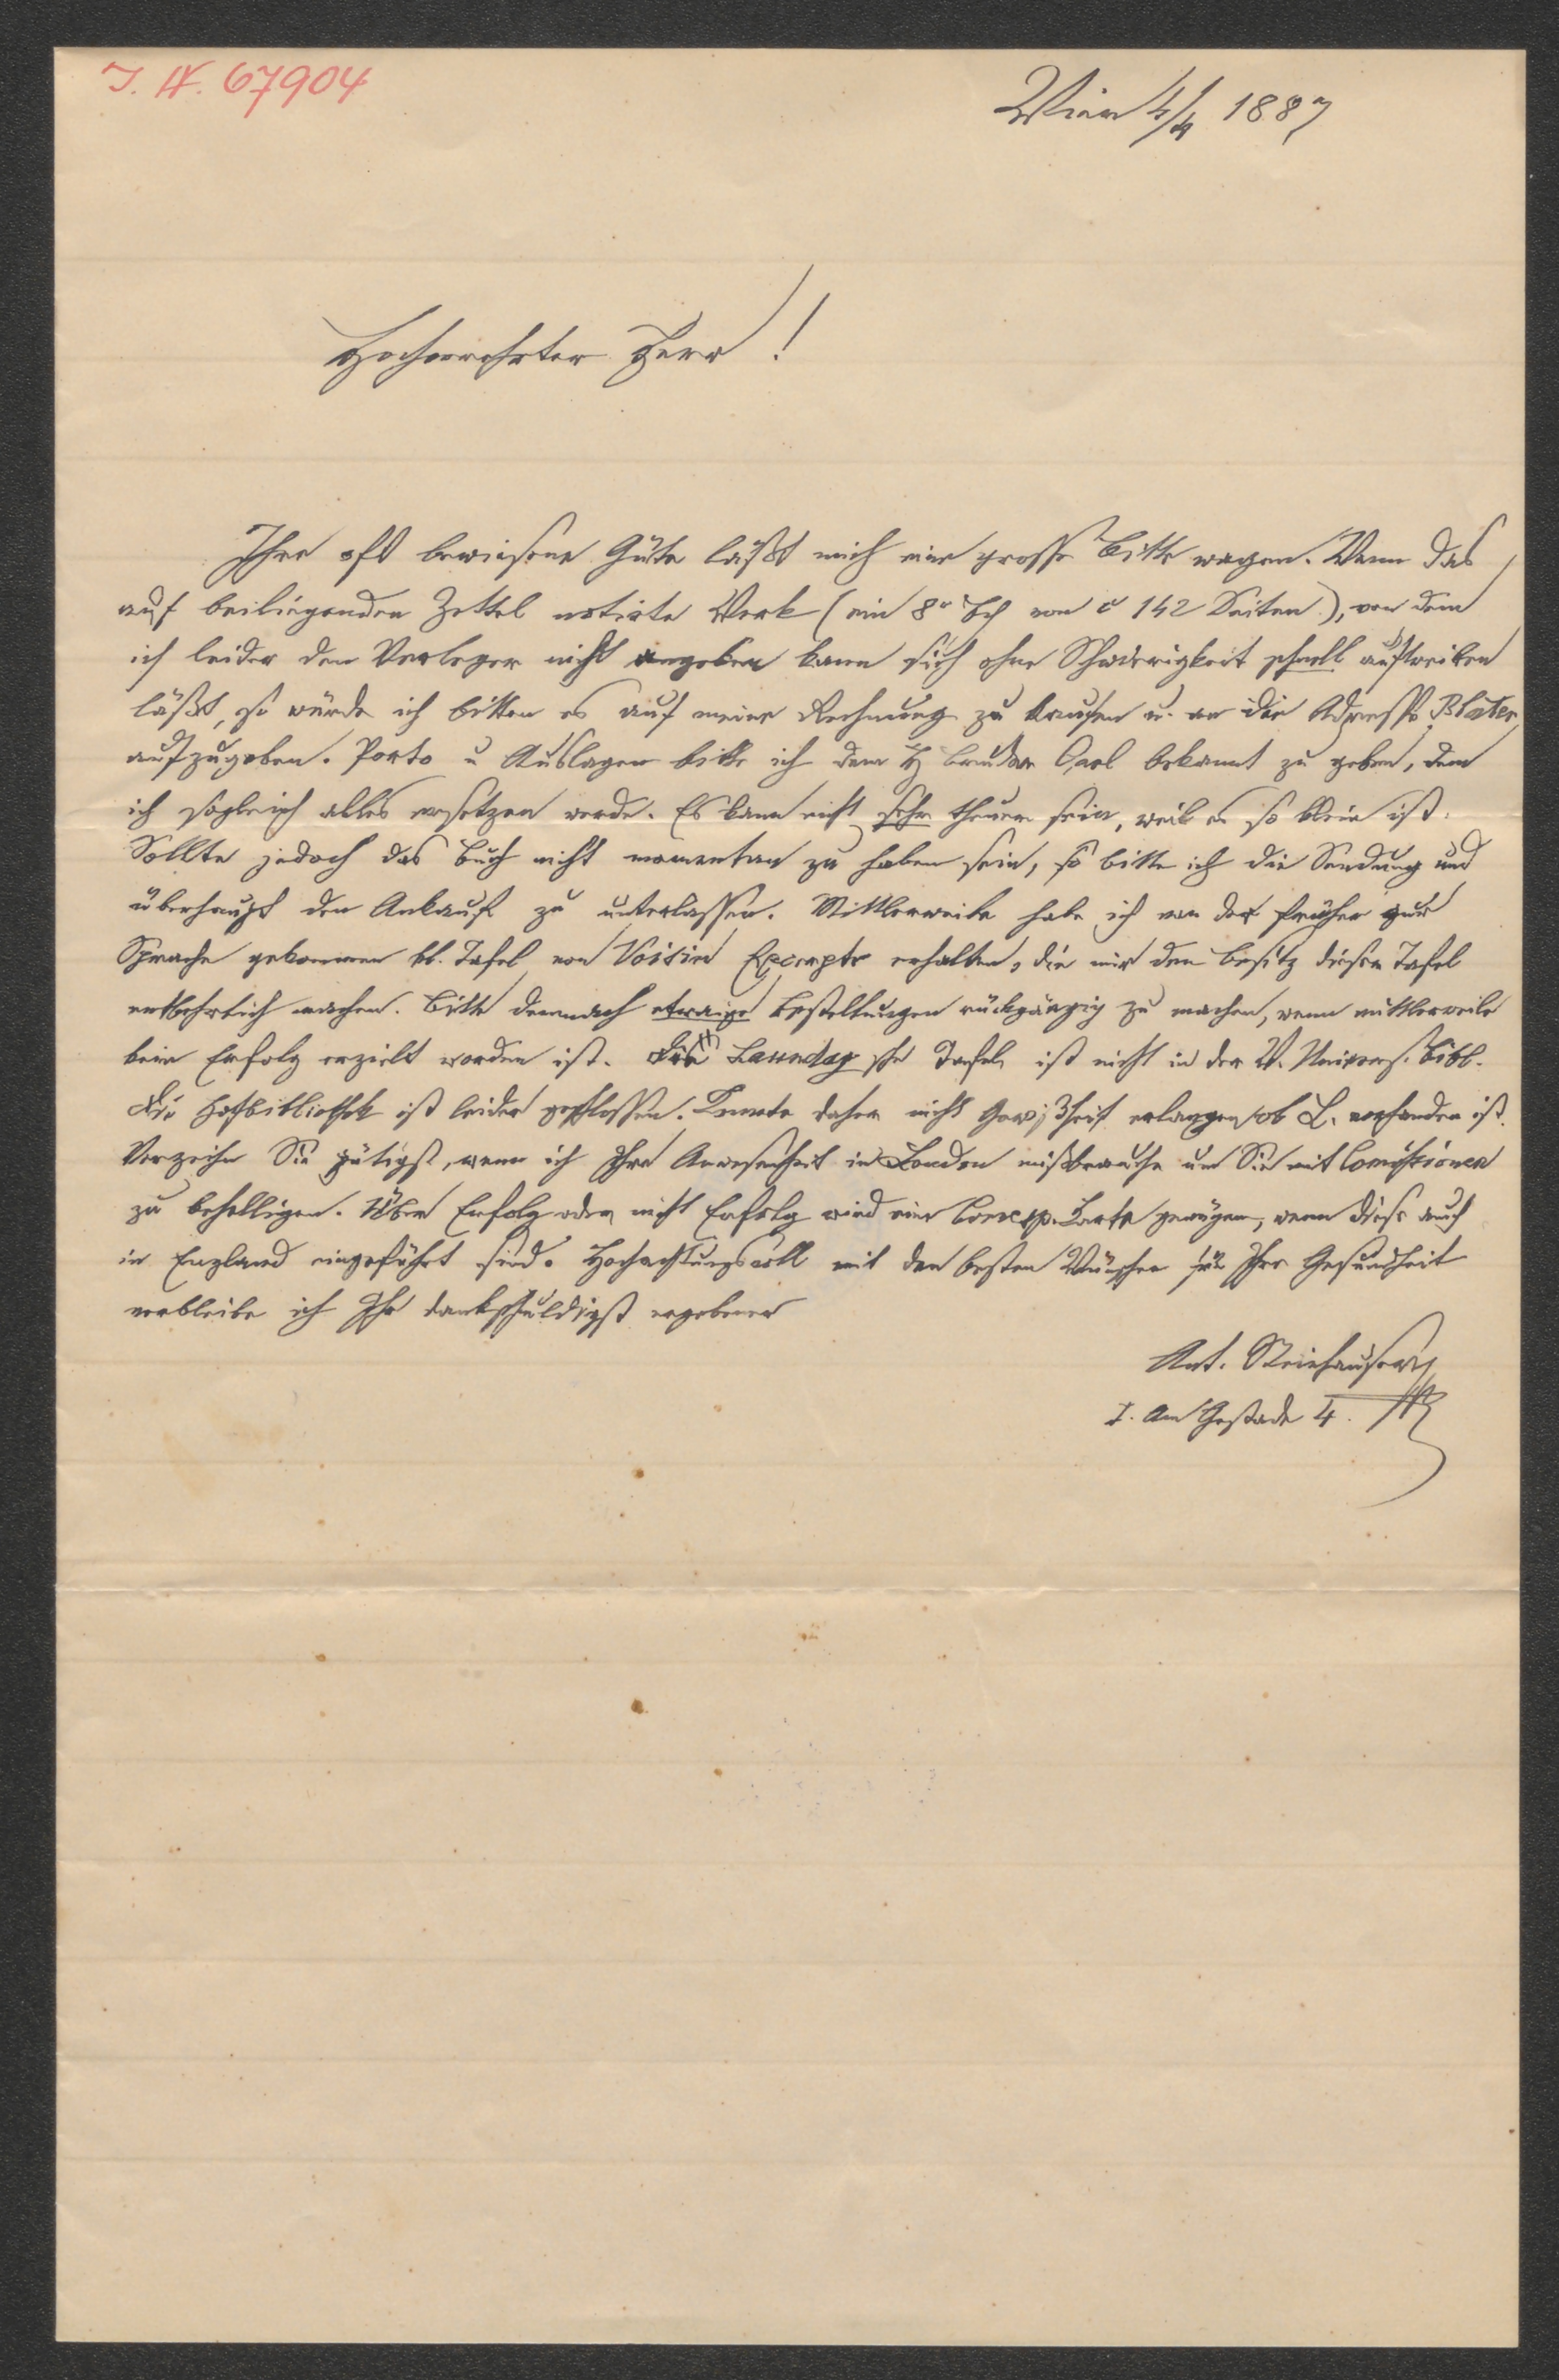 I. N. 67904
Wien 4/4 1887
Hochverehrter Herr!
Ihre oft bewiesene Güte läßt mich eine grosse Bitte wagen. Wenn das
auf beiliegenden Zettel notirte Werk (ein 8° von c 142 Seiten), von dem
ich leider den Verleger nicht angeben kann sich ohne Schwierigkeit schnell auftreiben
läßt, so würde ich bitten es auf meine Rechnung zu kaufen u. an die Adresse Blater
aufzugeben. Porto u Auslagen bitte ich dem H Bruder Carl bekannt zu geben, dem
ich sogleich alles ersetzen werde. Es kann nicht sehr theuer sein, weil es so klein ist.
Sollte jedoch das Buch nicht momentan zu haben sein, so bitte ich die Sendung und
überhaupt den Ankauf zu unterlassen. Mittlerweile habe ich von der früher zur
Sprache gekommen kl. Tafel von Voisin Excerpte erhalten, die mir den Besitz dieser Tafel
entbehrlich machen. Bitte demnach etwaige Bestellungen rückgängig zu machen, wenn mittlerweile
kein Erfolg erzielt worden ist. Die Laundy sche Tafel ist nicht in der W. Univers. Bibl.
Die Hofbibliothek ist leider geschlossen. Konnte daher nicht Gewißheit erlangen ob L. vorhanden ist.
Verzeihen Sie gütigst, wenn ich Ihre Anwesenheit in London mißbrauche um Sie mit Comissionen
zu behelligen. Über Erfolg oder nicht Erfolg wird eine Corresp. Karte genügen, wenn diese auch
in England eingeführt sind. Hochachtungsvoll mit den besten Wünschen für Ihre Gesundheit
verbleibe ich Ihr dankschuldigst ergebener
Ant. Steinhauser
I. Am Gestade 4.